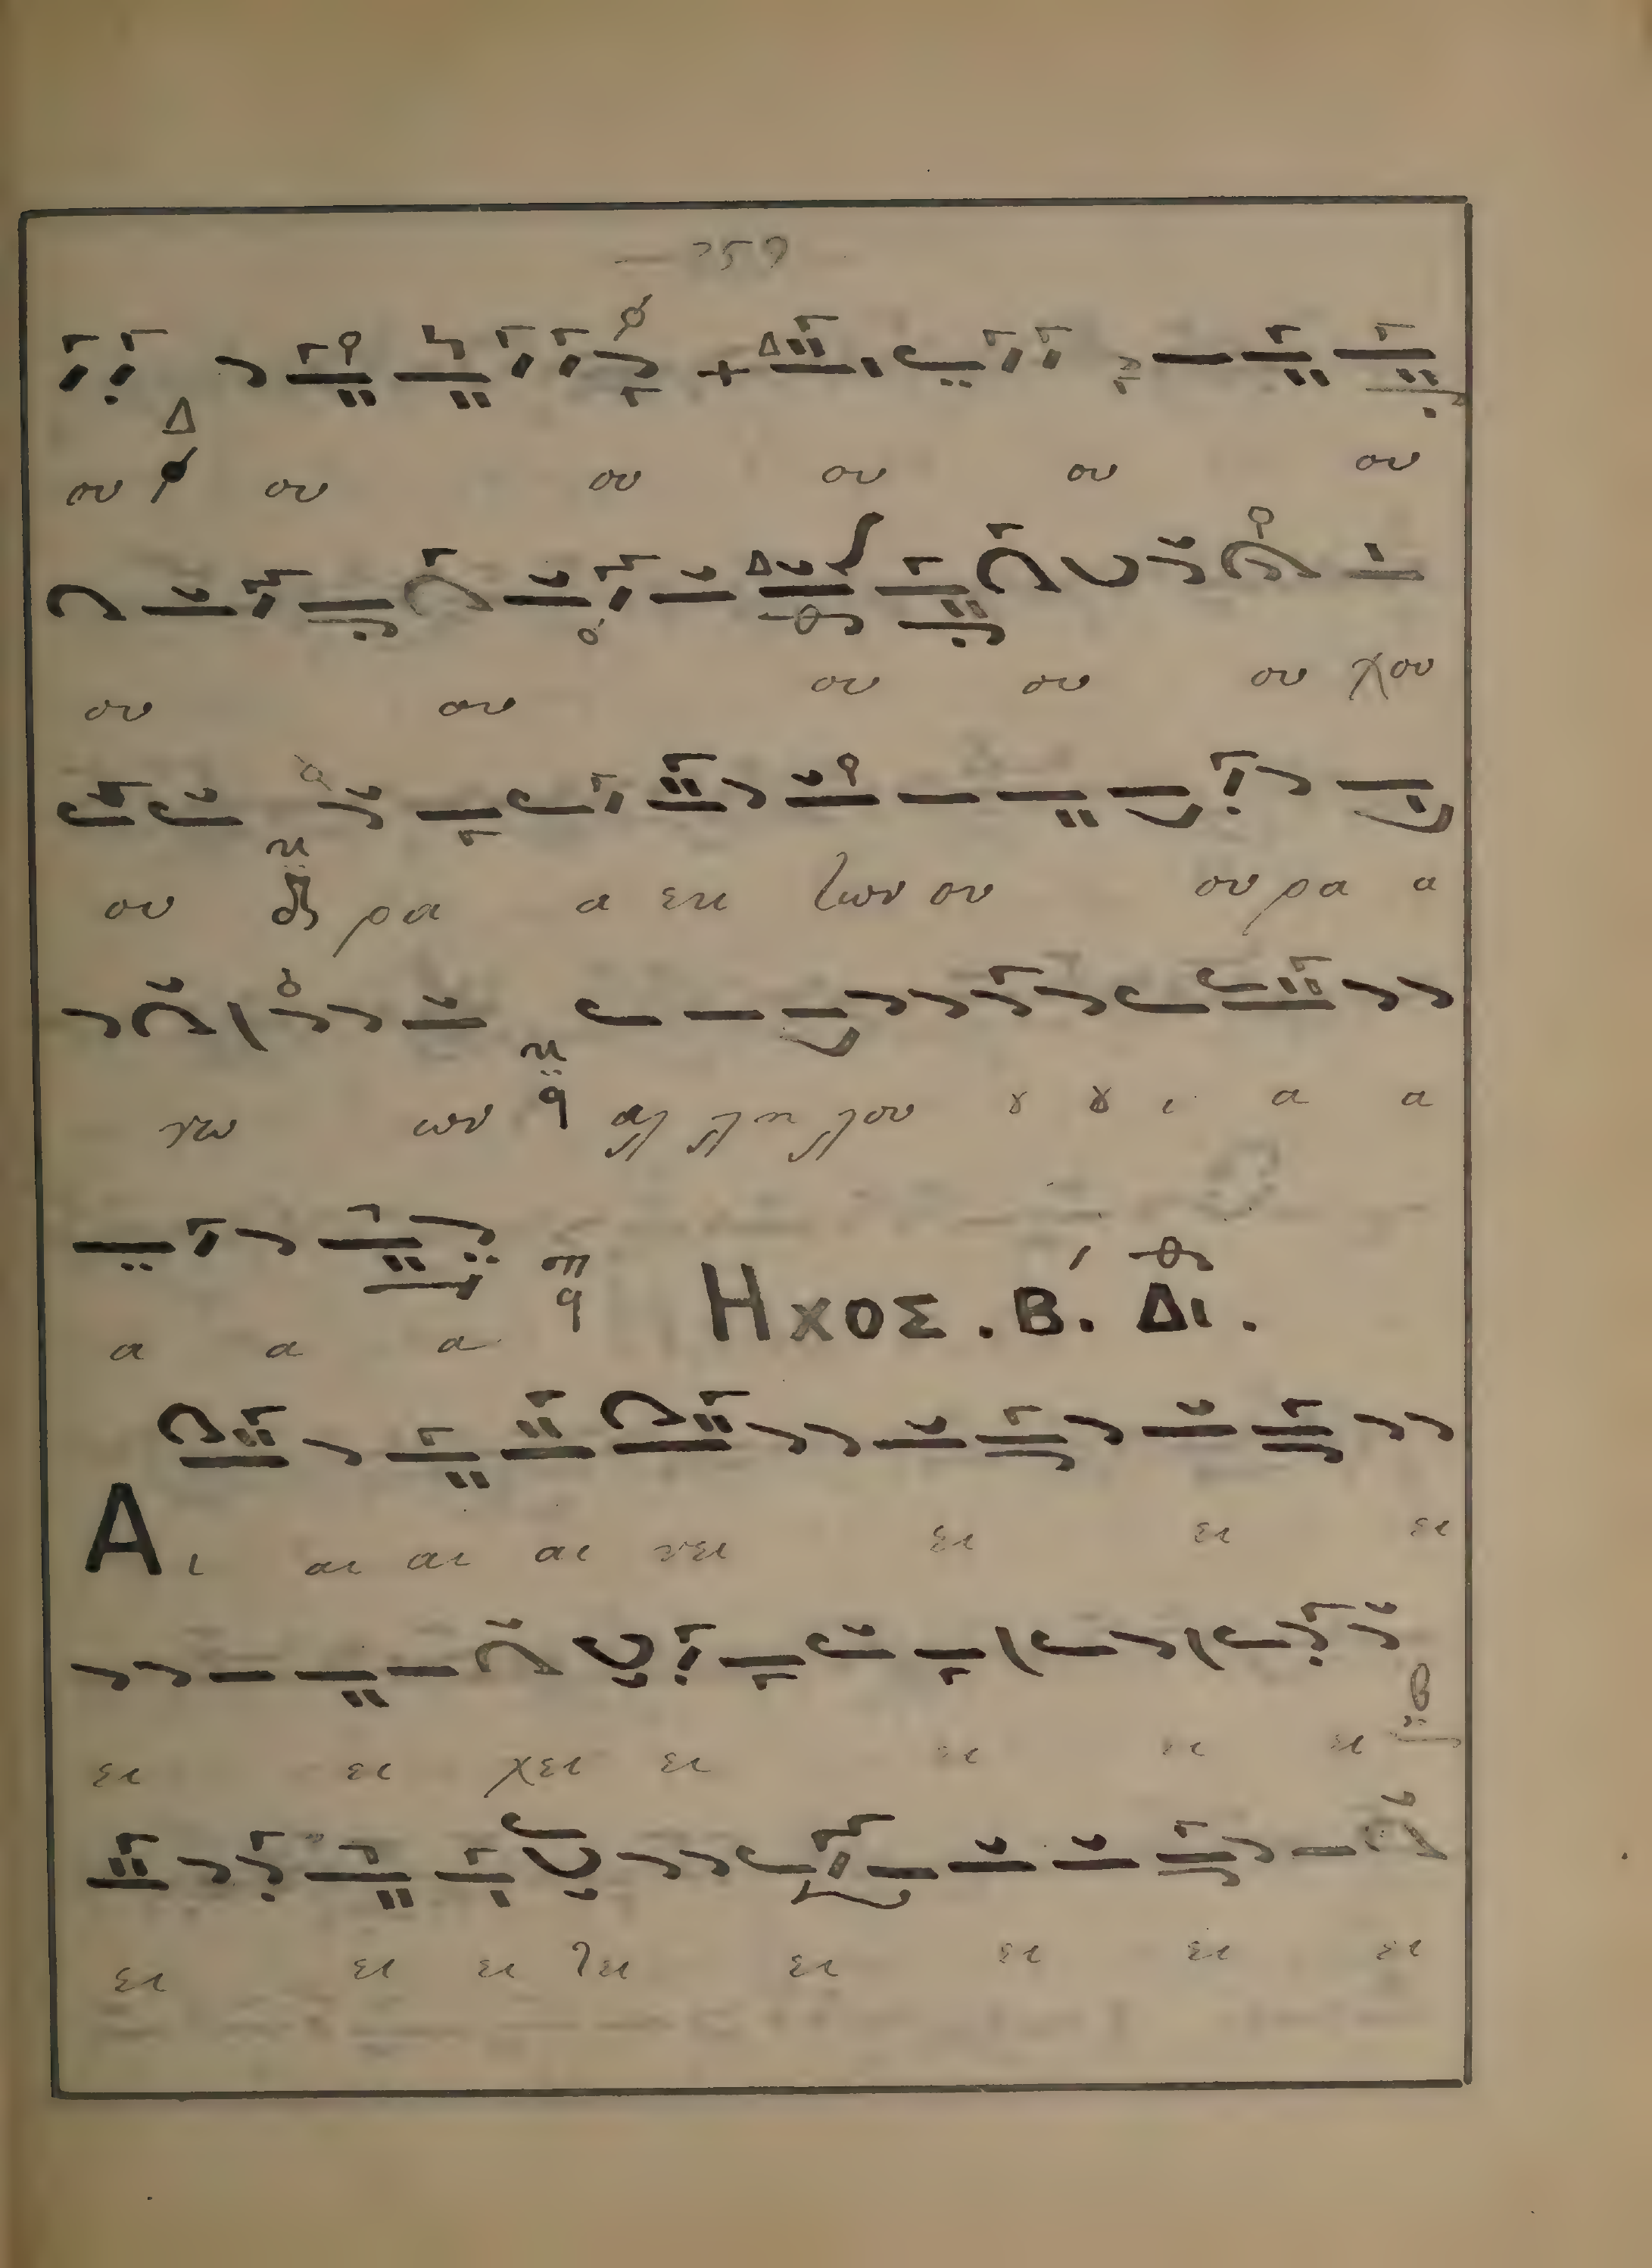 — 259
ου ου ου ου ου ου
ου ου ου ου ου χου
ου ρα α εκ των ου ου ρα α
νω ων αλ λλη λου ȣ ȣ ι α α
α α α Ηχος . Β . Δι .
Αι αι αι αι νει ει ει ει
ει ει χει ει ει ει ει
ει ει ει τει ει ει ει ει